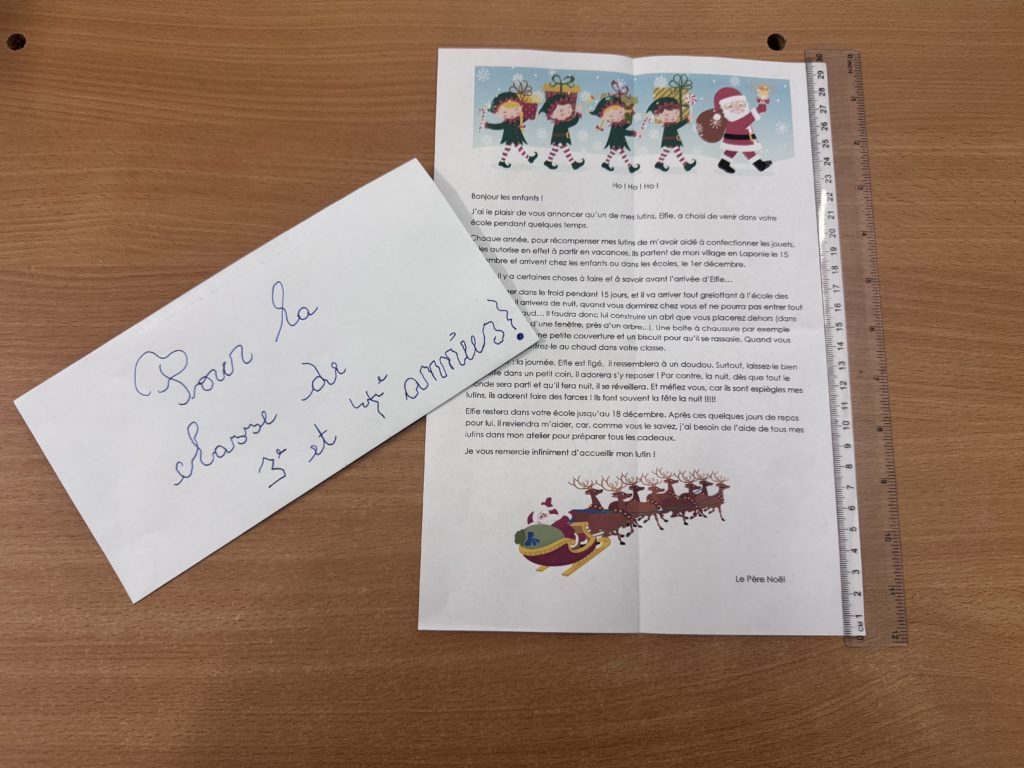 Pour la
classe de
3e et 4e années!
Ho ! Ho ! Ho !
Bonjour les enfants !
J'ai le plaisir de vous annoncer qu'un de mes lutins, Elfie, a choisi de venir dans votre
école pendant quelques temps.
Chaque année, pour récompenser mes lutins de m'avoir aidé à confectionner les jouets,
les autorise en effet à partir en vacances. Ils partent de mon village en Laponie le 15
embre et arrivent chez les enfants ou dans les écoles, le 1er décembre.
il y a certaines choses à faire et à savoir avant l'arrivée d'Elfie...
er dans le froid pendant 15 jours, et il va arriver tout grelottant à l'école des
l arrivera de nuit, quand vous dormirez chez vous et ne pourra pas entrer tout
aud... Il faudra donc lui construire un abri que vous placerez dehors (dans
d'une fenêtre, près d'un arbre...). Une boîte à chaussure par exemple
ne petite couverture et un biscuit pour qu'il se rassasie. Quand vous
trez-le au chaud dans votre classe.
: la journée, Elfie est figé, il ressemblera à un doudou. Surtout, laissez-le bien
dans un petit coin, il adorera s'y reposer ! Par contre, la nuit, dès que tout le
onde sera parti et qu'il fera nuit, il se réveillera. Et méfiez vous, car ils sont espiègles mes
lutins, ils adorent faire des farces ! Ils font souvent la fête la nuit !!!!!
Elfie restera dans votre école jusqu'au 18 décembre. Après ces quelques jours de repos
pour lui, il reviendra m'aider, car, comme vous le savez, j'ai besoin de l'aide de tous mes
lutins dans mon atelier pour préparer tous les cadeaux.
Je vous remercie infiniment d'accueillir mon lutin !
Le Père Noël
0 INCH 1 2 3 4 5 6 7 8 9 10 11 12
30 29 28 27 26 25 24 23 22 21 20 19 18 17 16 15 14 13 12 11 10 9 8 7 6 5 4 3 2 1 0 CM